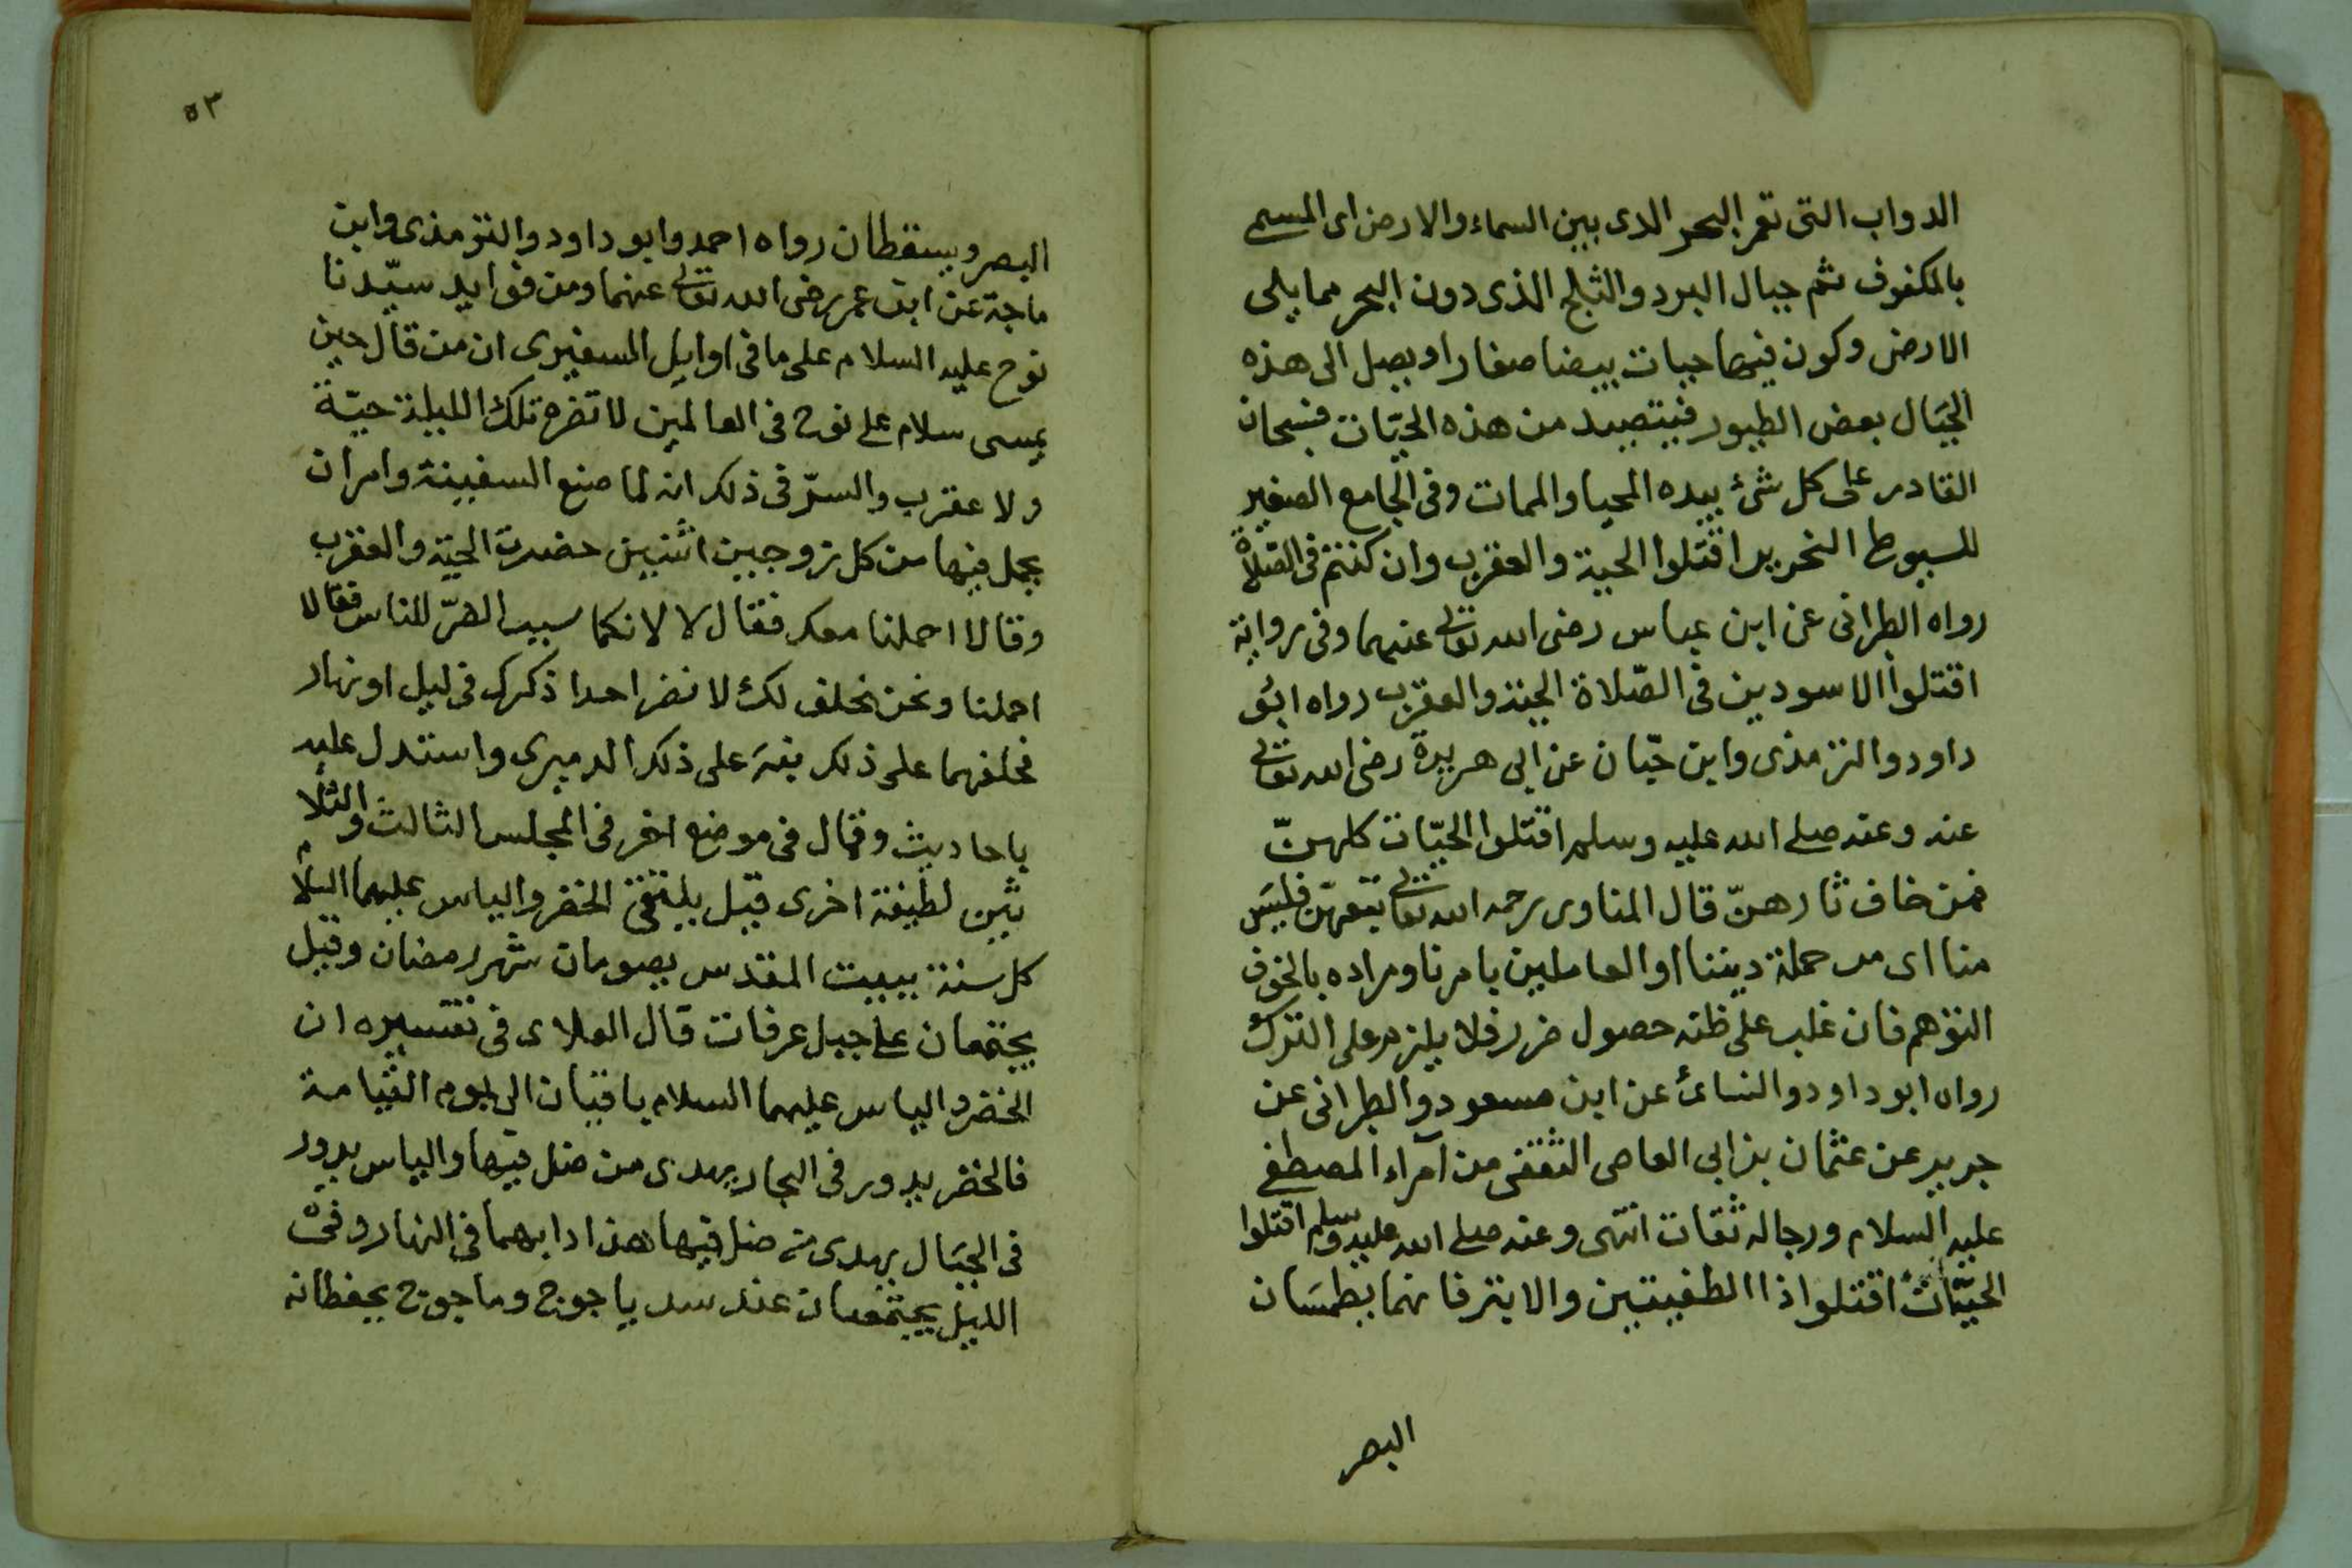 الدواب التى تعمر البحر الدى بين السماء والارض اى المسمى
بالمكفوف ثم جبال البرد والثلج الذى دون البحر مما يلى
الارض وكون فيها حيات بيضا صغارا ويصل الى هذه
الجبال بعض الطيور فيتصيد من هذه الحيّات فسبحان
القادر على كل شئ بيده المحيا والممات وفى الجامع الصغير
للسيوط النحرير اقتلوا الحية والعقرب وان كنتم فى الصّلاة
رواه الطبرانى عن ابن عباس رضى الله تعالى عنهما وفى رواية
اقتلوا الاسودين فى الصّلاة الحية والعقرب رواه ابو
داود والترمذى وابن حبّان عن ابى هريرة رضى الله تعالى
عنه وعنه صلى الله عليه وسلم اقتلوا الحيّات كلهنّ
فمن خاف ثارهنّ قال المناوى رحمه الله تعالى فليس
منا اى من جملة ديننا او العاملين بامرنا ومراده بالخوف
التوهم فان غلب على ظنه حصول ضرر فلا يلزم على الترك
رواه ابو داود والنسائ عن ابن مسعود والطبرانى عن
جرير عن عثمان بن ابى العاصى الثقفى من امراء المصطفى
عليه السلام ورجاله ثقات انتهى وعنه صلى الله عليه وسلم اقتلوا
الحيّات اقتلوا ذا الطفيتين والابتر فانهما يطمسان
البصر
٥٣
البصر ويسقطان رواه احمد وابو داود والترمذى وابن
ماجة عن ابن عمر رضى الله تعالى عنهما ومن فوايد سيّدنا
نوح عليه السلام على ما فى اوايل السفيرى ان من قال حين
يمسى سلام على نوح فى العالمين لا تضره تلك الليلة حيّة
ولا عقرب والسرّ فى ذلك انه لما صنع السفينة وامر ان
يحمل فيها من كل زوجين اثنين حضرت الحيّة والعقرب
وقالا احملنا معك فقال لا لانكما سبب الضرّ للناس فقالا
احملنا ونحن نحلف لك لا نضر احدا ذكرك فى ليل او نهار
فحلفهما على ذلك نبه على ذلك الدميرى واستدل عليه
باحاديث وقال فى موضع اخر فى المجلس الثالث والثلا
ثين لطيفة اخرى قيل يلتقى الخضر والياس عليهما السلام
كل سنة ببيت المقدس يصومان شهر رمضان وقيل
يجتمعان على جبل عرفات قال العلاى فى تفسيره ان
الخضر والياس عليهما السلام باقيان الى يوم القيامة
فالخضر يدور فى البحار يهدى من ضل فيها والياس يدور
فى الجبال يهدى من ضل فيها هذا دابهما فى النهار وفى
الليل يجتمعان عند سد ياجوج وماجوج يحفظانه